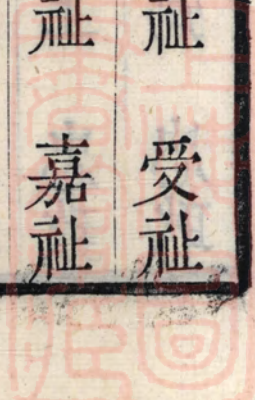 祉　受祉
祉　嘉祉